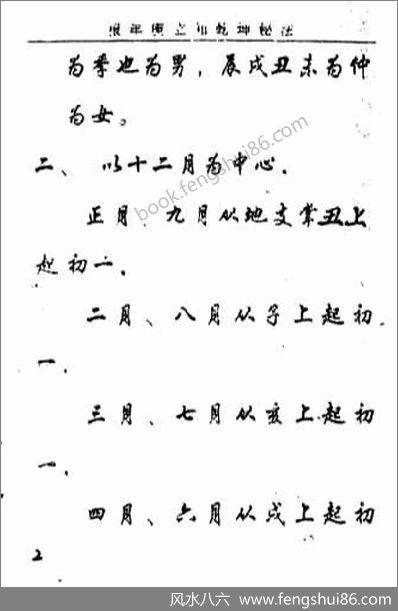 为季也为男，辰戌丑未为仲
为女。
二、 以十二月为中心.
正月、九月从地支掌丑上
起初一.
二月、八月从子上起初
一.
三月、七月从亥上起初
一.
四月、六月从戌上起初
2
book.fengshui86.com
风水八六 | www.fengshui86.com